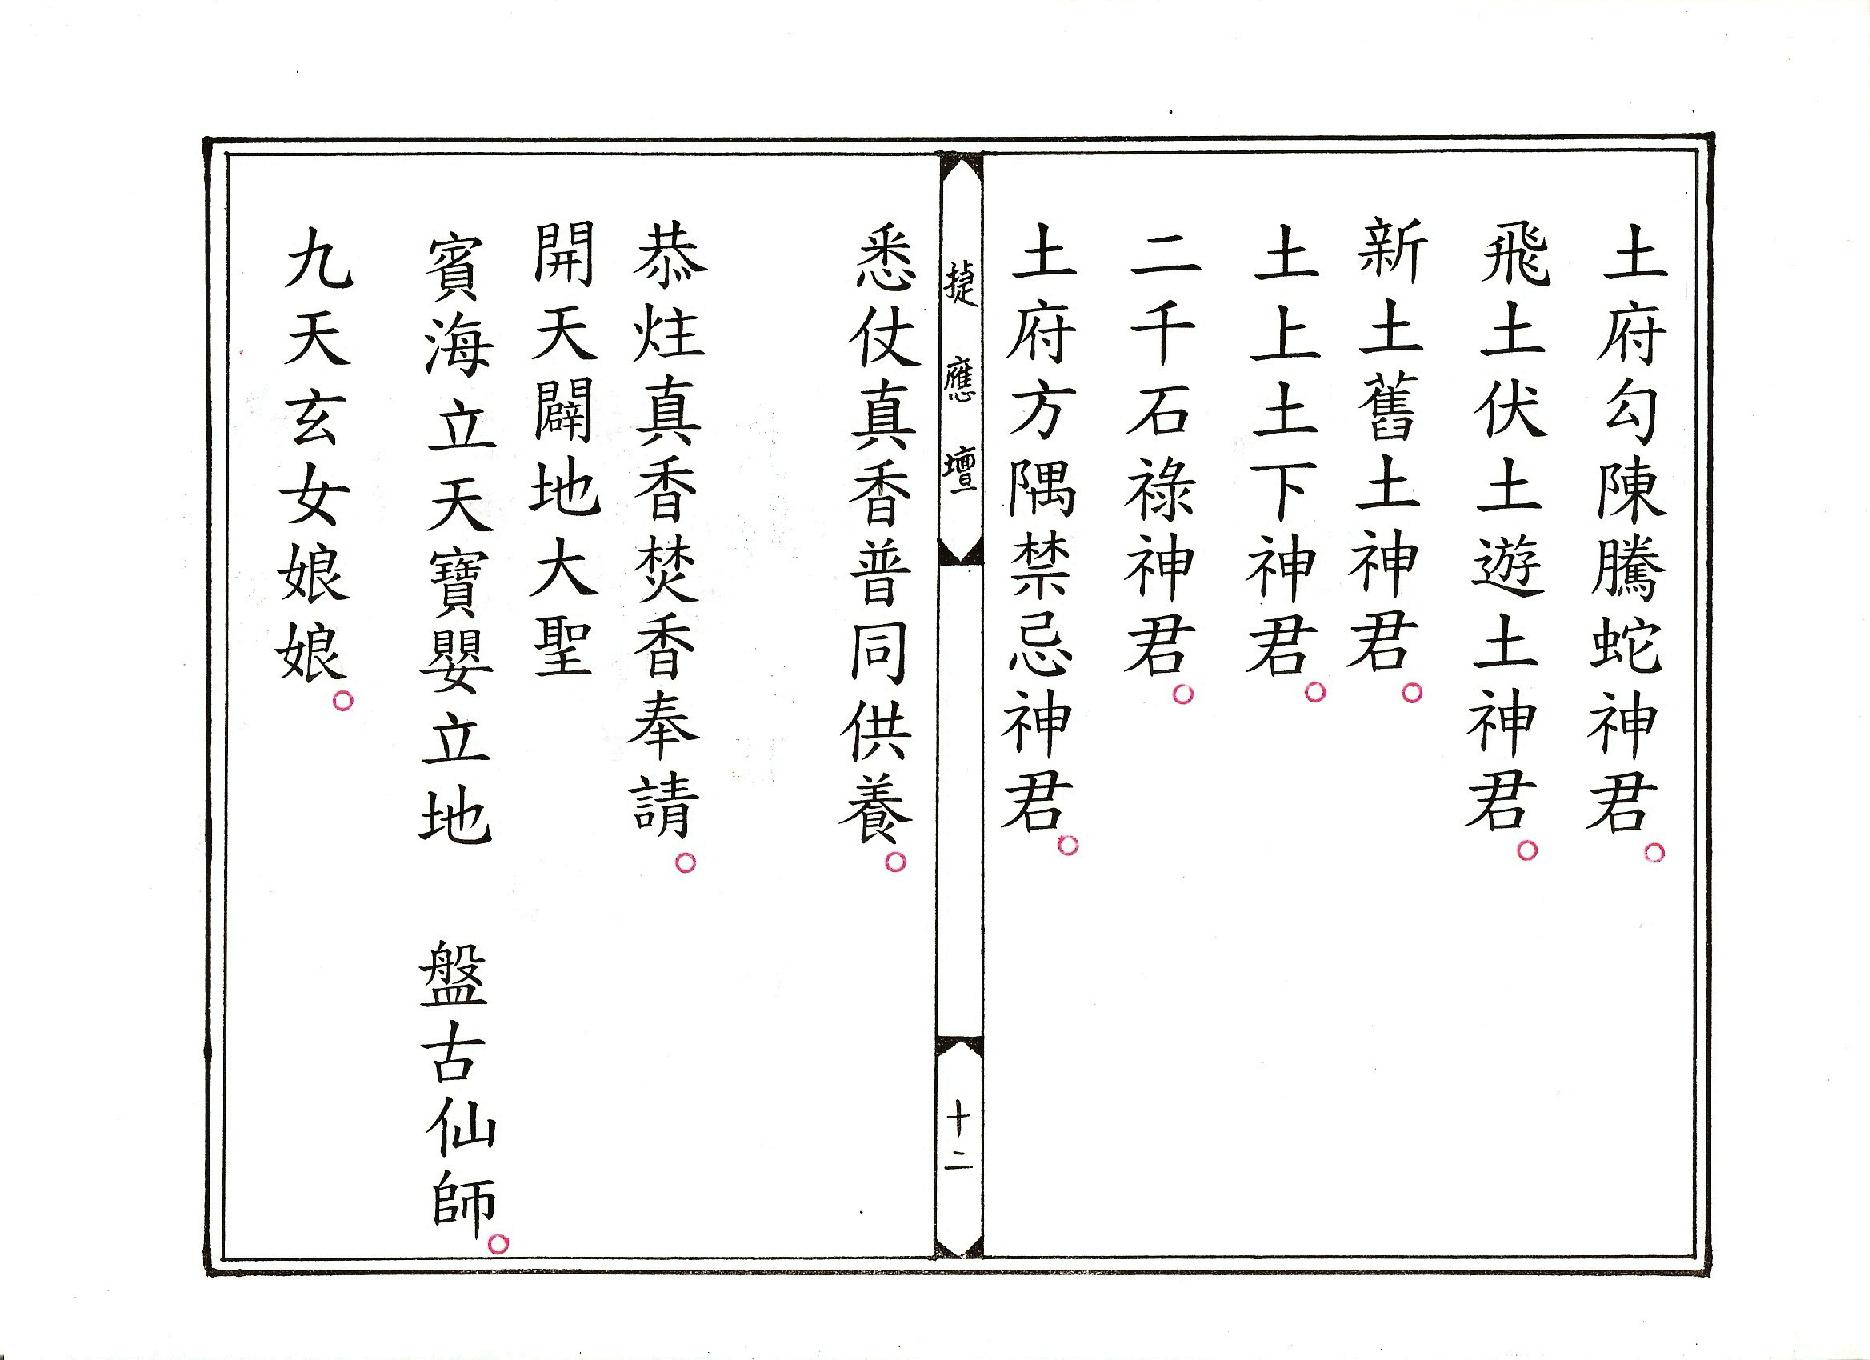 土府勾陳騰蛇神君。
飛土伏土遊土神君。
新土舊土神君。
土上土下神君。
二千石祿神君。
土府方隅禁忌神君。
捷應壇
十二
悉仗真香普同供養。
恭炷真香焚香奉請。
開天闢地大聖
賓海立天寶嬰立地　盤古仙師。
九天玄女娘娘。